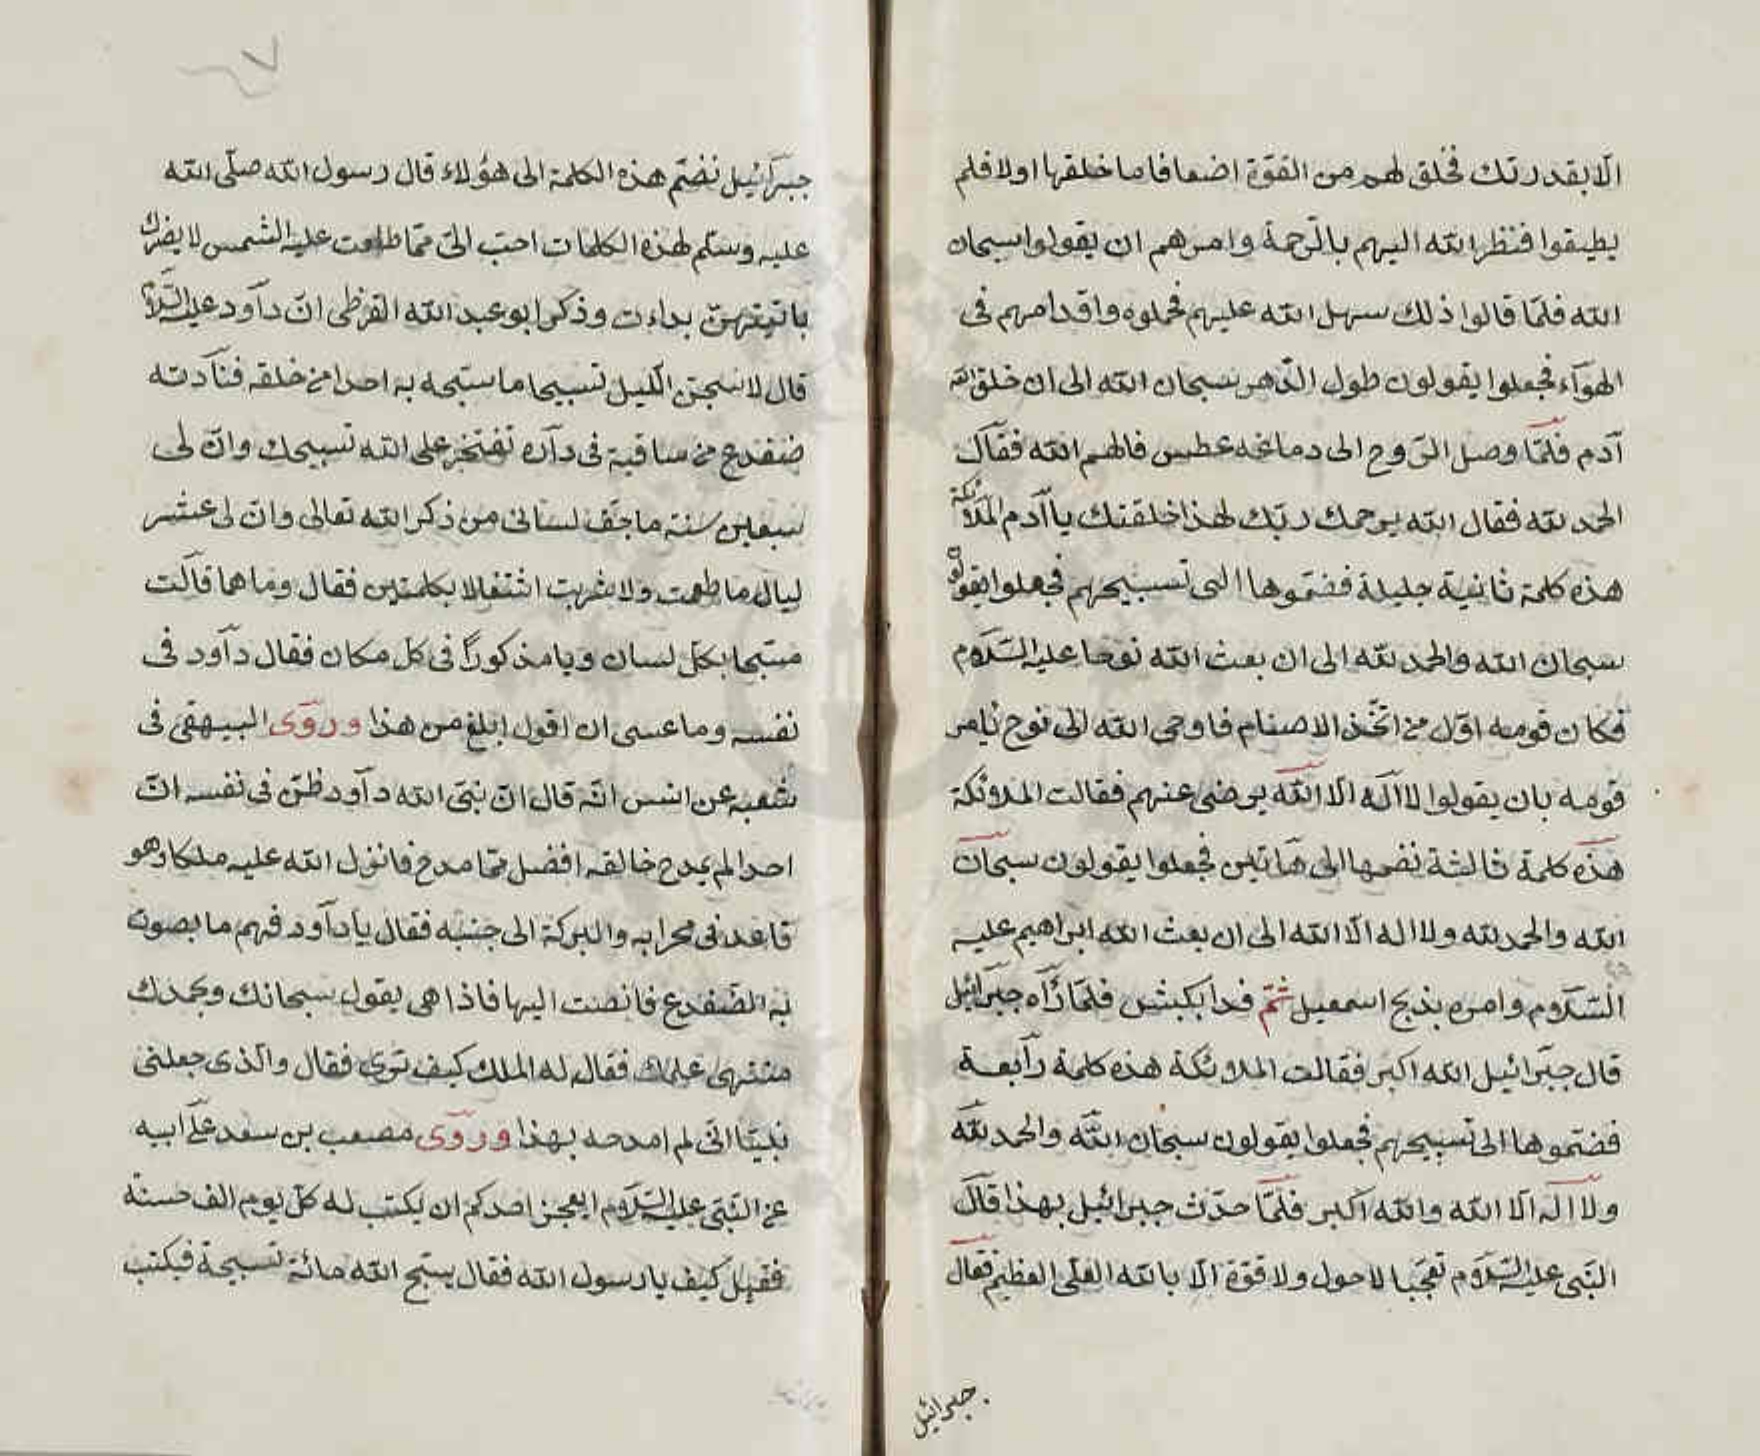 الا بقدرتك فخلق لهم من القوة اضعافا ما خلقها اولا فلم
يطيقوا فنظر الله اليهم بالرحمة وامرهم ان يقولوا سبحان
الله فلمّا قالوا ذلك سهل الله عليهم فحملوه واقدامهم فى
الهوآء فجعلوا يقولون طول الدّهر سبحان الله الى ان خلق الله
آدم فلمّا وصل الرّوح الى دماغه عطس فالهم الله فقال
الحمد لله فقال الله يرحمك ربّك لهذا خلقتك يا آدم الملائكة
هذه كلمة ثانية جليلة فضمّوها الى تسبيحهم فجعلوا يقولون
سبحان الله والحمد لله الى ان بعث الله نوحا عليه السّلام
فكان قومه اوّل من اتّخذ الاصنام فاوحى الله الى نوح يامر
قومه بان يقولوا لا اله الا الله يرضى عنهم فقالت الملائكة
هذه كلمة ثالثة نضمها الى هاتين فجعلوا يقولون سبحان
الله والحمد لله ولا اله الّا الله الى ان بعث الله ابراهيم عليه
السّلام وامره بذبح اسمعيل ثمّ فدا بكبش فلمّا رآه جبرائيل
قال جبرائيل الله اكبر فقالت الملائكة هذه كلمة رابعة
فضمّوها الى تسبيحهم فجعلوا يقولون سبحان الله والحمد لله
ولا اله الّا الله والله اكبر فلمّا حدّث جبرائيل بهذا قال
النّبى عليه السّلام تعجّبا لا حول ولا قوّة الّا بالله العلى العظيم فقال
جبرائيل
٧
جبرآئيل نضمّ هذه الكلمة الى هؤلاء قال رسول الله صلّى الله
عليه وسلّم لهذه الكلمات احبّ الىّ ممّا طلعت عليه الشمس لا يضرك
باتيتهنّ بداءت وذكر ابو عبد الله القرظى انّ دآود عليه السّلام
قال لاسبحنّ الليل تسبيحا ما سبّحه به احد من خلقه فنادته
ضفدع من ساقية فى داره تفتخر على الله تسبيحك وانّ لى
سبعين سنة ما جفّ لسانى من ذكر الله تعالى وانّ لى عشر
ليال ما طعمت ولا شربت اشتغالا بكلمتين فقال وما هما قالت
مسبّحا بكلّ لسان ويا مذكورا فى كلّ مكان فقال دآود فى
نفسه وما عسى ان اقول ابلغ من هذا وروى البيهقى فى
شعبه عن انس انّه قال انّ نبىّ الله دآود ظنّ فى نفسه انّ
احدا لم يمدح خالقه افضل ممّا مدح فانزل الله عليه ملكا وهو
قاعد فى محرابه والبركة الى جنبه فقال يا دآود فهم ما يصوت
به الضّفدع فانصت اليها فاذا هى يقول سبحانك وبحمدك
منتهى علمك فقال له الملك كيف ترى فقال والّذى جعلنى
نبيّا انّى لم امدحه بهذا وروى مصعب بن سعد عن ابيه
عن النّبىّ عليه السّلام ايعجز احدكم ان يكتب له كلّ يوم الف حسنة
فقيل كيف يا رسول الله فقال يسبّح الله مائة تسبيحة فيكتب